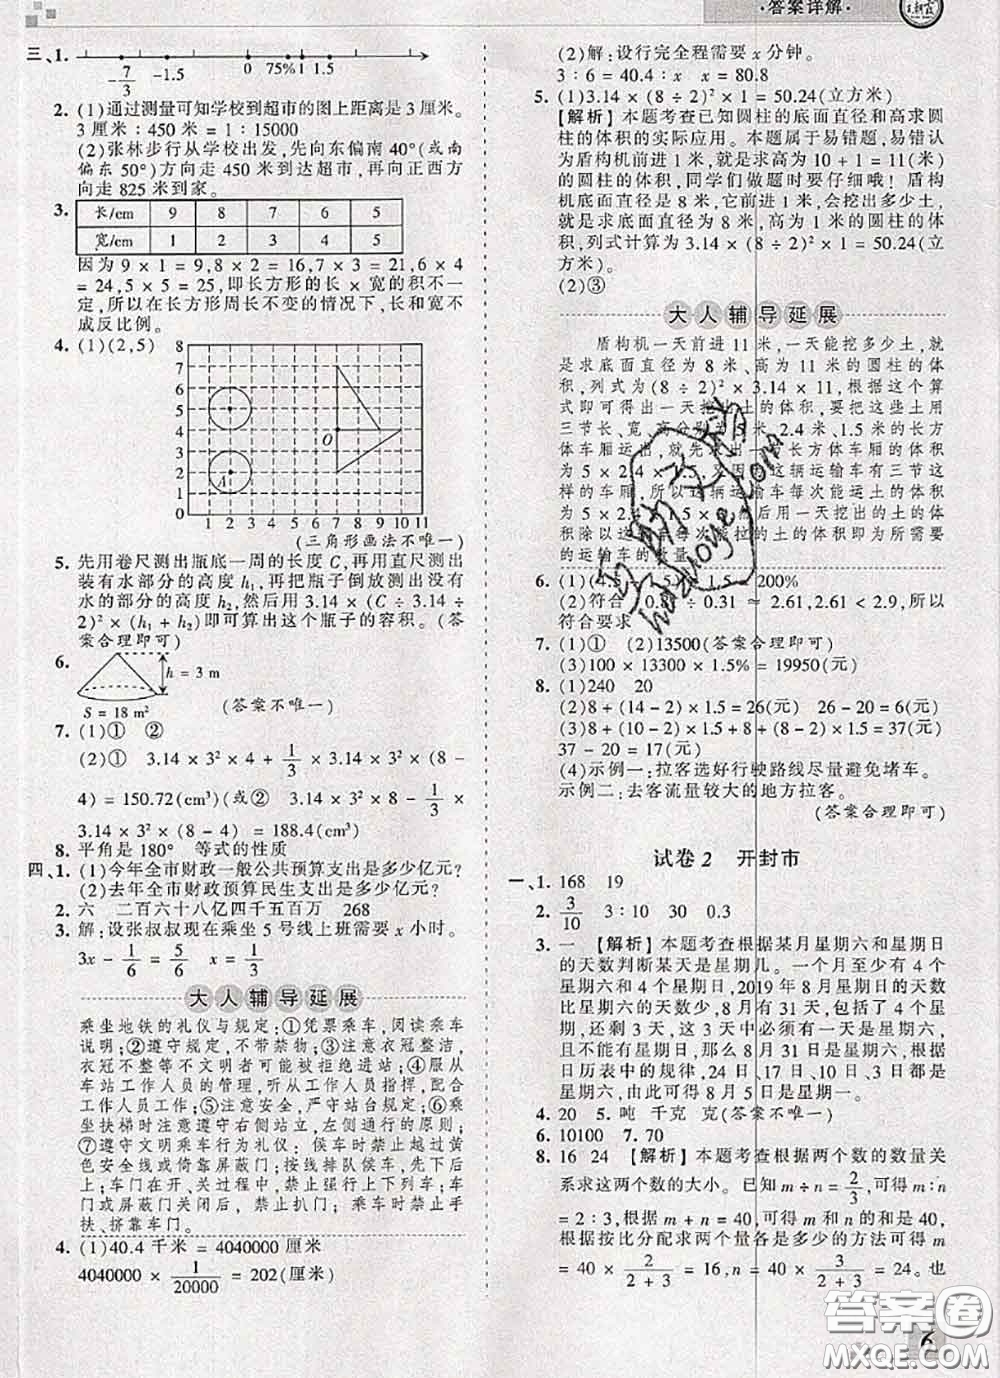 ·答案详解·
三、1.
-7/3 -1.5 0 75% 1 1.5
2. (1)通过测量可知学校到超市的图上距离是3厘米。
3厘米:450米=1:15000
(2)张林步行从学校出发,先向东偏南40°(或南
偏东50°)方向走450米到达超市,再向正西方
向走825米到家。
3. 长/cm 9 8 7 6 5
宽/cm 1 2 3 4 5
因为9×1=9,8×2=16,7×3=21,6×4
=24,5×5=25,即长方形的长×宽的积不一
定,所以在长方形周长不变的情况下,长和宽不
成反比例。
4. (1)(2,5)
8
7
6
5
4
3
2
1
0 1 2 3 4 5 6 7 8 9 10 11
A
O
(三角形画法不唯一)
5. 先用卷尺测出瓶底一周的长度C,再用直尺测出
装有水部分的高度h₁,再把瓶子倒放测出没有
水的部分的高度h₂,最后用3.14×(C÷3.14÷
2)²×(h₁+h₂)即可算出这个瓶子的容积。(答
案合理即可)
6. h=3 m
S=18 m² (答案不唯一)
7. (1)① ②
(2)① 3.14×3²×4+1/3×3.14×3²×(8-
4)=150.72(cm³)(或② 3.14×3²×8-1/3×
3.14×3²×(8-4)=188.4(cm³)
8. 平角是180° 等式的性质
四、1. (1)今年全市财政一般公共预算支出是多少亿元?
(2)去年全市财政预算民生支出是多少亿元?
2. 六 二百六十八亿四千五百万 268
3. 解:设张叔叔现在乘坐5号线上班需要x小时。
3x-1/6=5/6 x=1/3
大人辅导延展
乘坐地铁的礼仪与规定:①凭票乘车,阅读乘车
说明;②遵守规定,不带禁物;③注意衣冠整洁,
衣冠不整等不文明者可能被拒绝进站;④服从
车站工作人员的管理,听从工作人员指挥,配合
工作人员工作;⑤注意安全,严守站台规式;⑥乘
坐扶梯时注意遵守右侧站立,左侧通行的原则;
⑦遵守文明乘车行为礼仪:候车时禁止越过黄
色安全线或倚靠屏蔽门;按线排队候车,先下后
上;车门在开、关过程中,禁止强行上下车;车门
或屏蔽门关闭后,禁止扒门。乘车时禁止手
扶、挤靠车门。
4. (1)40.4千米=4040000厘米
4040000×1/20000=202(厘米)
(2)解:设行完全程需要x分钟。
3:6=40.4:x x=80.8
5. (1)3.14×(8÷2)²×1=50.24(立方米)
【解析】本题考查已知圆柱的底面直径和高求圆
柱的体积的实际应用。本题属于易错题,易错认
为盾构机前进1米,就是求高为10+1=11(米)
的圆柱的体积,同学们做题时要仔细哦!盾构
机底面直径为8米,它前进1米,会挖出多少土,
就是求底面直径为8米,高为1米的圆柱的体
积,列式计算为3.14×(8÷2)²×1=50.24(立
方米)。
(2)③
大人辅导延展
盾构机一天前进11米,一天能挖多少土,就
是求底面直径为8米、高为11米的圆柱的体
积,列式为(8÷2)²×3.14×11,根据这个算
式即可得出一天挖出土的体积,要把这些土用
三节长、宽、高分别为5米、2.4米、1.5米的长方
体车厢运出,就先求出一个长方体车厢的体积
为5×2.4×1.5,又因为这辆运输车有三节这
样的车厢,所以这辆运输车每次能运土的体积
为5×2.4×1.5×3,最后用一天挖出的土的体
积除以这辆运输车每次能拉的土的体积即为所需
的运输车的数量。
6. (1)(4.5-1.5)÷1.5=200%
(2)符合 0.81÷0.31≈2.61,2.61<2.9,所以
符合要求
7. (1)① (2)13500(答案合理即可)
(3)100×13300×1.5%=19950(元)
8. (1)240 20
(2)8+(14-2)×1.5=26(元) 26-20=6(元)
(3)8+(10-2)×1.5+8+(8-2)×1.5=37(元)
37-20=17(元)
(4)示例一:拉客选好行驶路线尽量避免堵车。
示例二:去客流量较大的地方拉客。
(答案合理即可)
试卷2 开封市
一、1. 168 19
2. 3/10 3:10 30 0.3
3. 一 【解析】本题考查根据某月星期六和星期日
的天数判断某天是星期几。一个月至少有4个
星期六和4个星期日,2019年8月星期日的天数
比星期六的天数少,8月有31天,包括了4个星
期,还剩3天,这3天中必须有一天是星期六,
且不能有星期日,那么8月31日是星期六,根据
日历表中的规律,24日、17日、10日、3日也都
是星期六,由此可得8月5日是星期一。
4. 20 5. 吨 千克 克(答案不唯一)
6. 10100 7. 70
8. 16 24 【解析】本题考查根据两个数的数量关
系求这两个数的大小。已知m÷n=2/3,可得m:n
=2:3,根据m+n=40,可得m和n的和是40,
根据按比分配求两个量各是多少的方法可得m
=40×2/(2+3)=16,n=40×3/(2+3)=24。也
6
答案圈
MXQE.COM